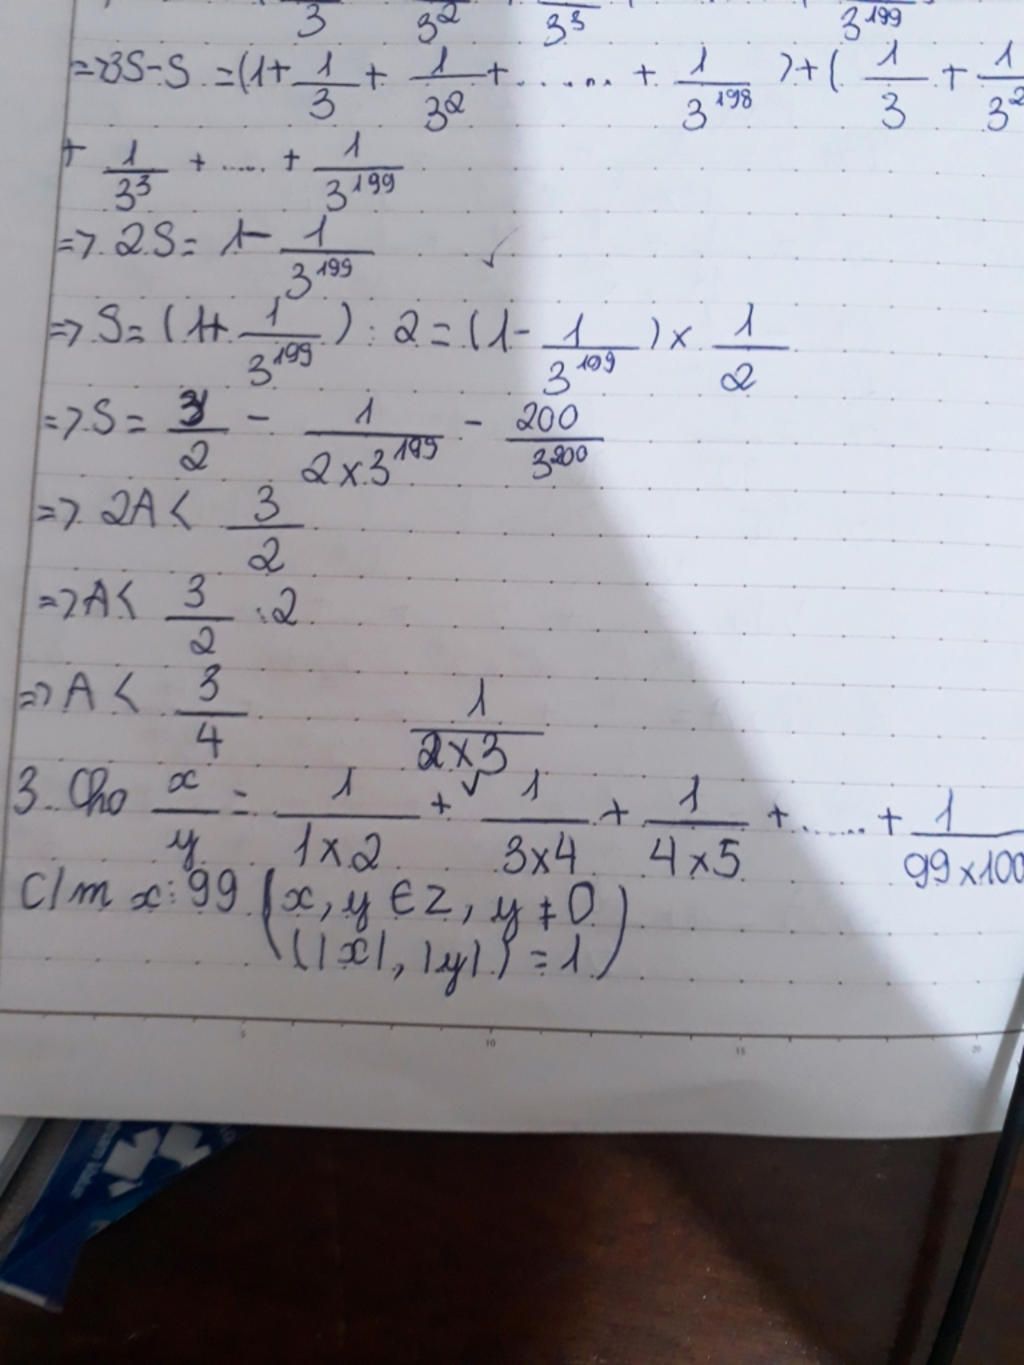 3 3² 3³ 3¹⁹⁹
=> 3S-S = (1+ 1/3 + 1/3² + ....... + 1/3¹⁹⁸ ) + ( 1/3 + 1/3²
+ 1/3³ + ..... + 1/3¹⁹⁹
=> 2S = 1- 1/3¹⁹⁹
=> S = (1+ 1/3¹⁹⁹ ) : 2 = (1- 1/3¹⁹⁹ ) x 1/2
=> S = 3/2 - 1/2x3¹⁹⁹ - 200/3²⁰⁰
=> 2A < 3/2
=> A < 3/2 : 2
=> A < 3/4
1/2x3
3. Cho x/y = 1/1x2 + 1/3x4 + 1/4x5 + ....... + 1/99x100
C/m x : 99 (x, y ∈ Z, y ≠ 0
(|x|, |y|) = 1)
5 10 15 20